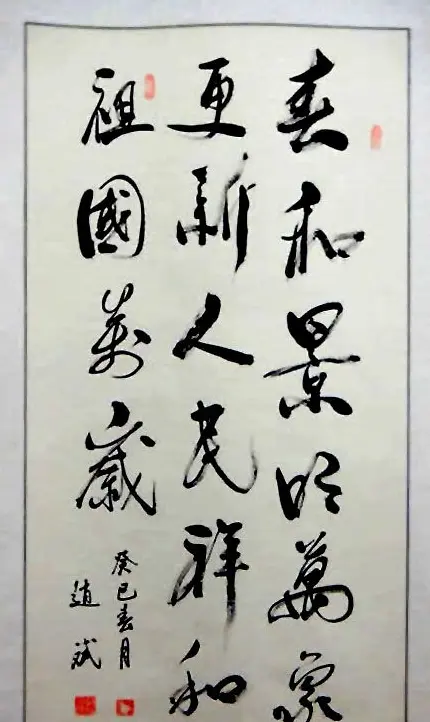 春和景明萬家
更新人民祥和
祖國萬歲
癸巳春月
趙斌